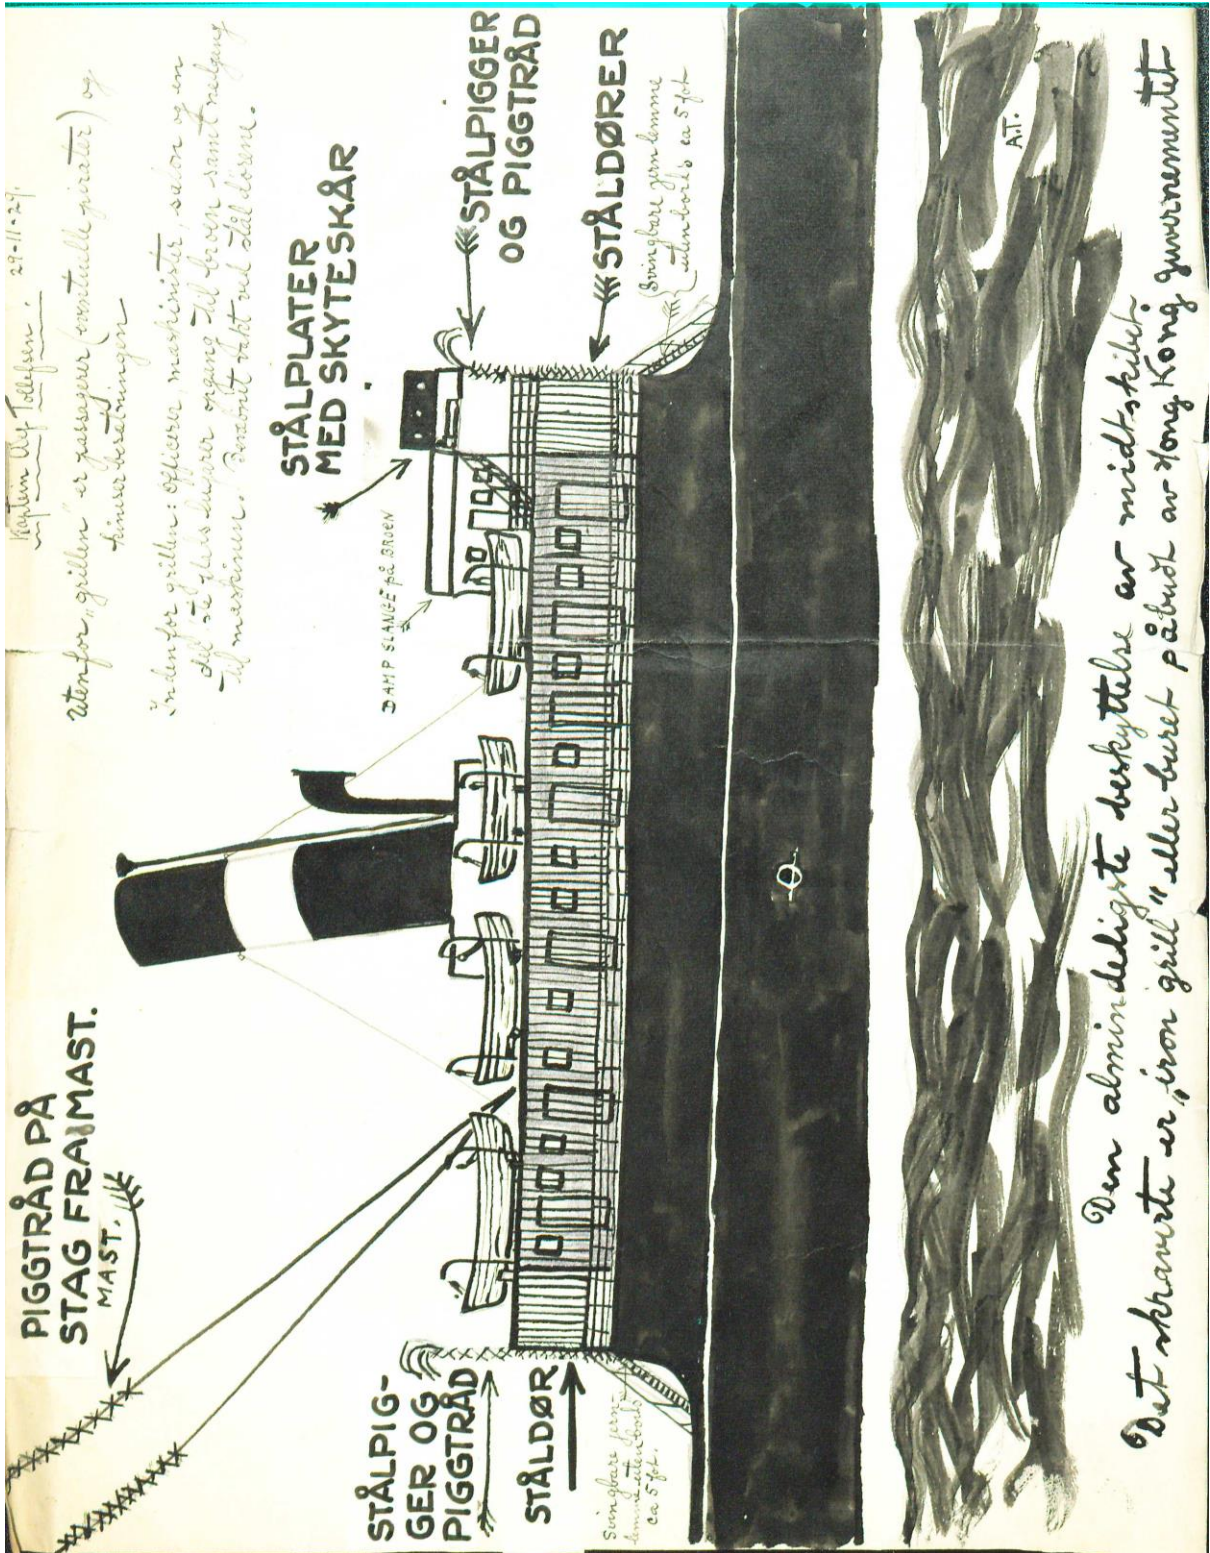 Kaptein Alf Tollefsen: 29-11-29.
Utenfor „grillen" er passagerer (eventuelle pirater) og
kineserbesætningen
Indenfor grillen: officerer, maskinister, salon og en
del
til maskinen. Bevæbnet vakt ved ståldørene.
PIGGTRÅD PÅ
STAG FRA MAST.
MAST.
STÅLPLATER
MED SKYTESKÅR
DAMPSLANGE på BROEN
STÅLPIGGER
OG PIGGTRÅD
STÅLDØRER
Svingbare jernlemme
utenbords ca 5 fot
STÅLPIG-
GER OG
PIGGTRÅD
STÅLDØR
Svingbare jern-
lemme utenbords
ca 5 fot.
A.T.
Den almindeligste beskyttelse av midtskibet
Det skraverte er „iron grill" eller buret påbudt av Hong Kong guvernementet